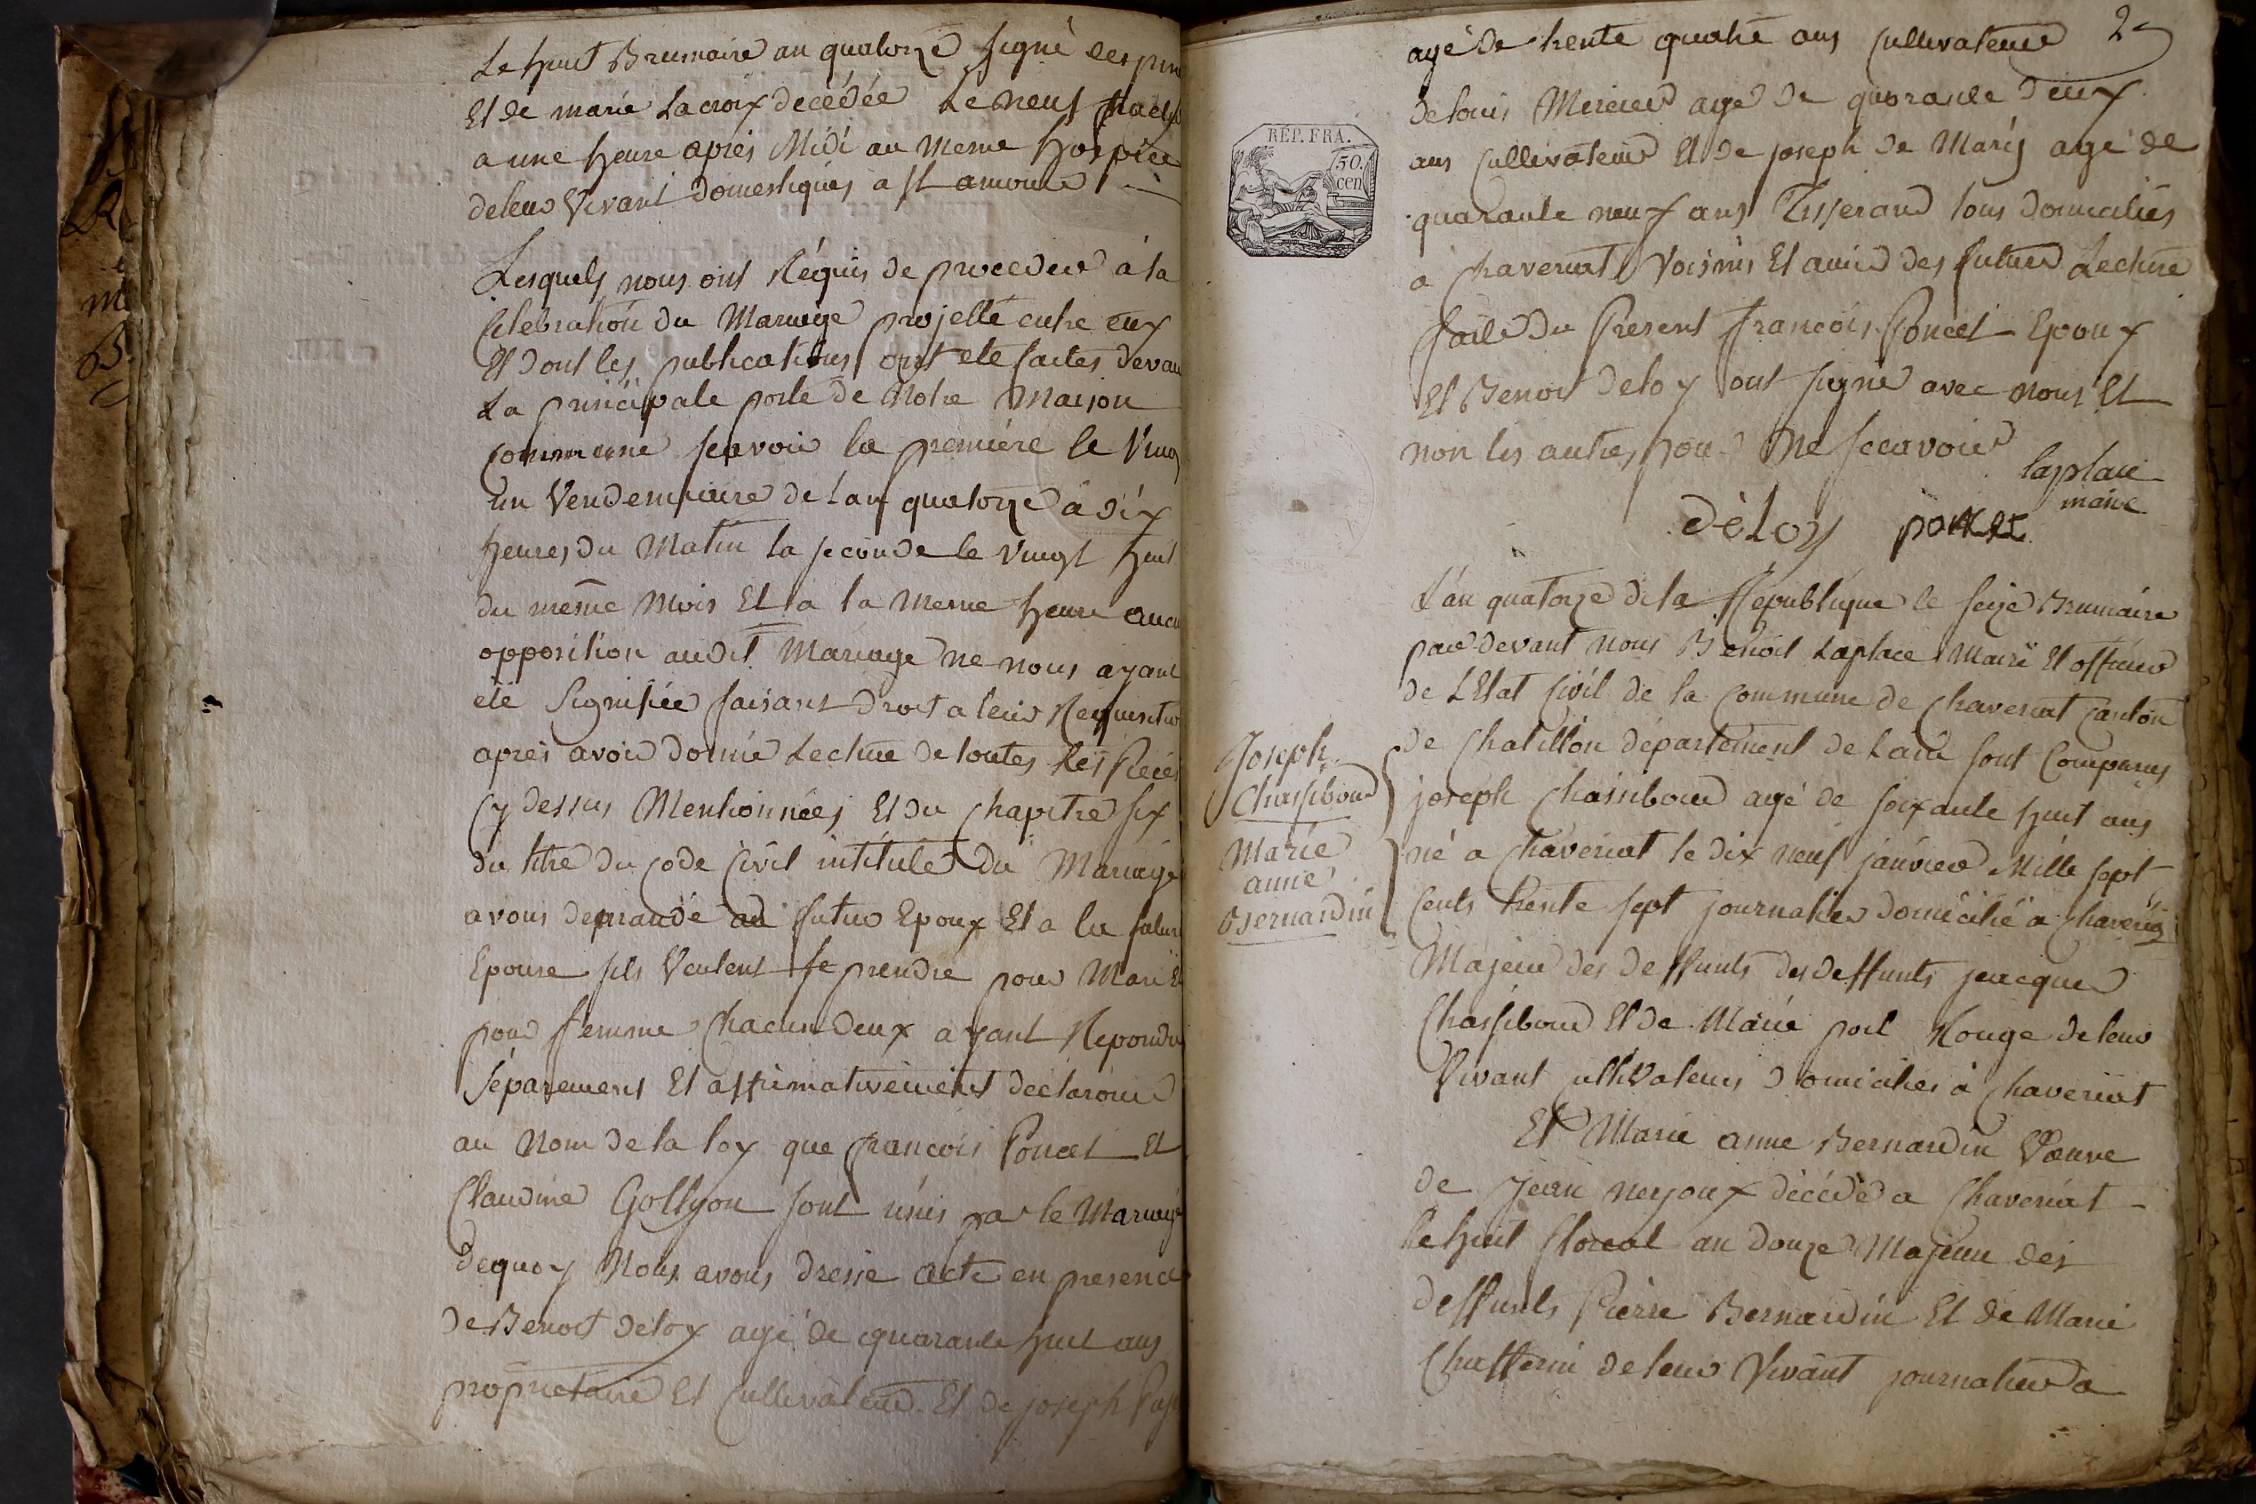 Le huit Brumaire an quatorze signé
Et de marie Lacroix decédée Le neuf
a une heure aprés Midi au meme hospice
deleur Vivant domestiques a St amour
Lesquels nous ont Réquis de proceder á la
Celebration du Mariage projetté entre eux
Et dont les publications ont eté faites devan
La principale porte de Notre Maison
commune scavoir la premiére le Vingt
un Vendemiaire de Lan quatorze á dix
heures du Matin la seconde le vingt huit
du même Mois Et a la Meme heure aucu
opposition audit Mariage ne nous ayant
eté Signifiée faisant droit a leur Requisitio
aprés avoir donné Lecture de toutes Les Piéces
Cy dessus Mentionnées Et du Chapitre six
du titre du Code Civil intitulé Du Mariage
avons demandé au futur Epoux Et a la future
Epouse sils Veulent se prendre pour Mari Et
pour femme Chacun deux ayant Repondu
Séparement Et affirmativement declarons
au Nom de la loy que francois Poncet Et
Claudine Gollyon sont unis par le Mariage
Dequoy Nous avons dressé acte en presence
de Benoit deloy agé de quarante huit ans
proprietaire Et Cultivateur Et de joseph
2
agé de trente quatre ans Cultivateur
de louis Mercier agé de quarante deux
ans Cultivateur Et de joseph de Maris agé de
quarante neuf ans Tisserand tous domiciliés
á Chaveriat Voisins Et amis des futurs Lecture
faite Du Present francois Poncet Epoux
Et Benoit deloy ont signé avec nous Et
non les autres pour Ne scavoir
laplace
maire
déloy poncet
REP. FRA.
50.
cen
L'an quatorze de la Republique le seize Brumaire
par devant nous Benoit Laplace Maire Et officier
de L'Etat Civil de la Commune de Chaveriat Canton
de Chatillon département de Lain sont Comparus
Joseph
Chassiboud
Marie
anne
Bernardin
joseph Chassiboud agé de soixante huit ans
né a Chaveriat le dix neuf janvier Mille sept
Cents trente sept journalier domicilié a Chaveria
Majeur des deffunts des deffunts jacques
Chassiboud Et de Marie poil Rouge de leur
Vivant Cultivateurs domiciliés á Chaveriat
Et Marie anne Bernardin Veuve
de Jean nerjoux décédé a Chaveriat
le huit floreal an douze Majeure des
deffunts Pierre Bernardin Et de Marie
de leur Vivant journaliers a